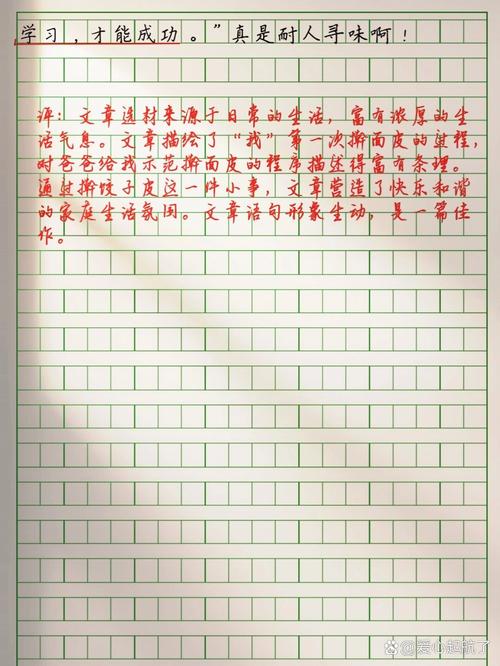 学习，才能成功。”真是耐人寻味啊！
评：文章选材来源于日常的生活，富有浓厚的生
活气息。文章描绘了“我”第一次擀面皮的过程，
对爸爸给我示范擀面皮的程序描述得富有条理。
通过擀饺子皮这一件小事，文章营造了快乐和谐
的家庭生活氛围。文章语句形象生动，是一篇佳
作。
@爱心起航了